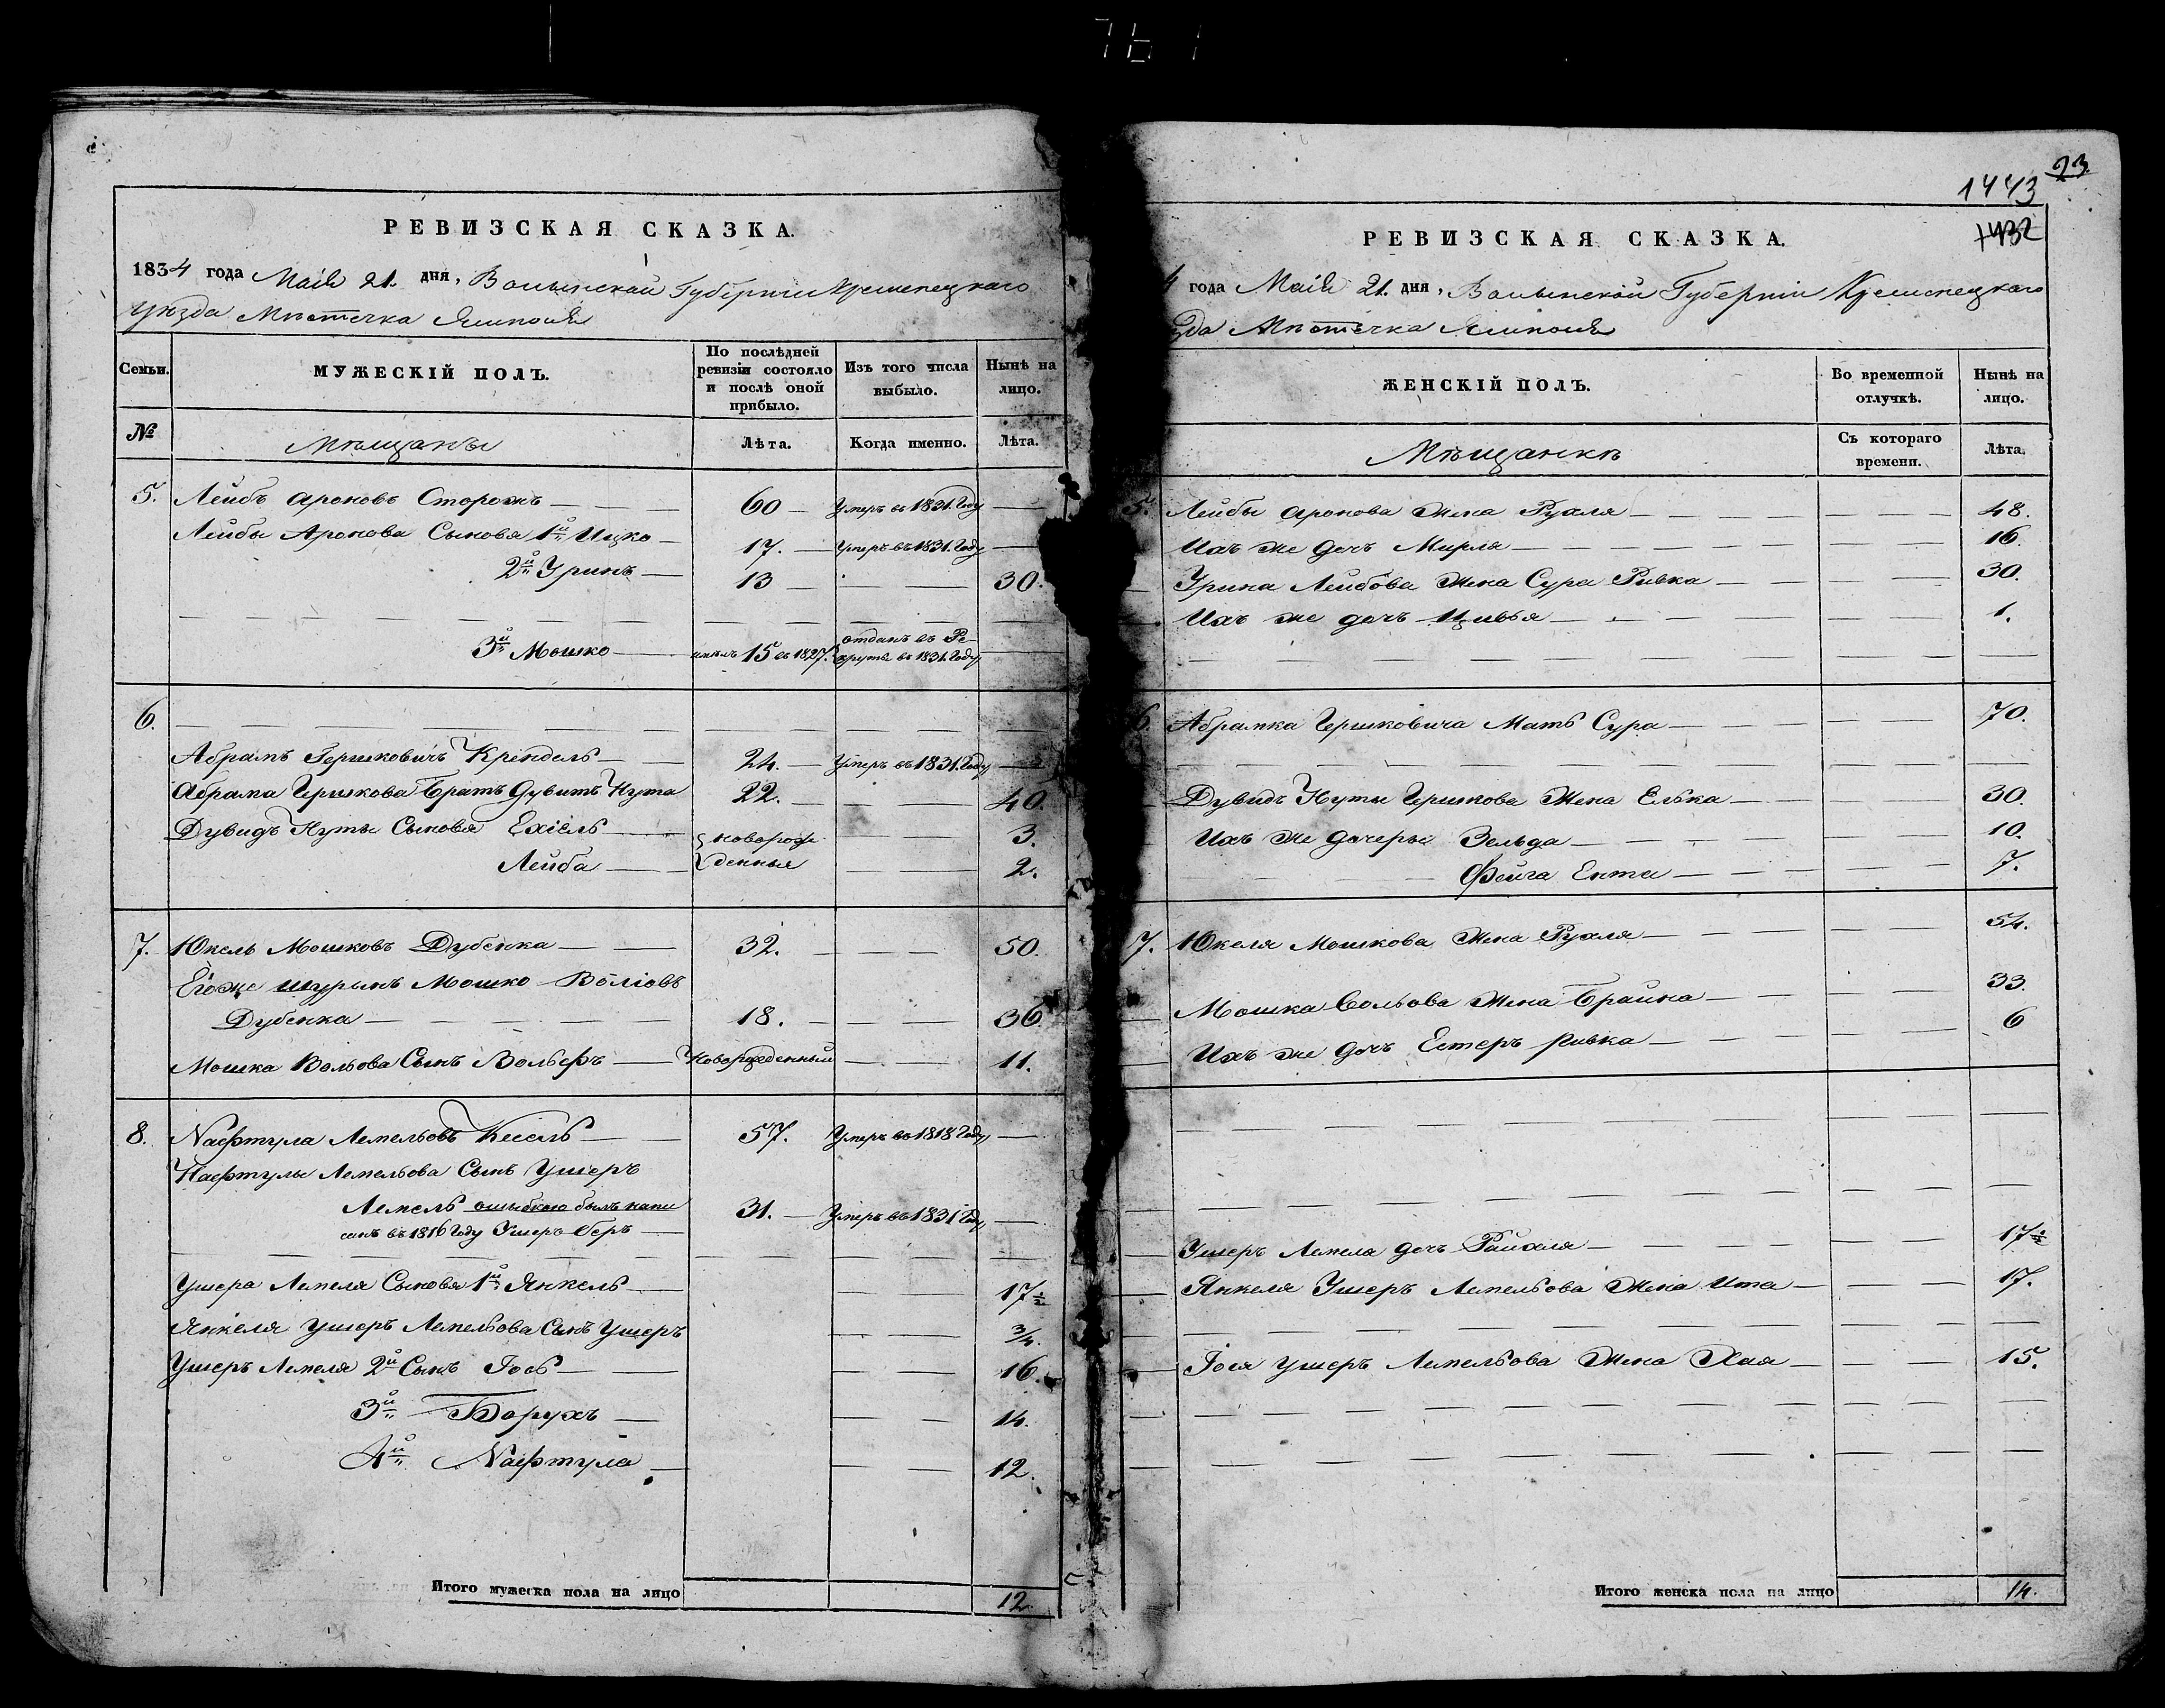 РЕВИЗСКАЯ СКАЗКА.
1834 года Маія 21. дня, Волынской Губерніи Кременецкаго
уѣзда Мѣстечка Ямполя
Семьи.
МУЖЕСКІЙ ПОЛЪ.
По послѣдней ревизіи состояло и послѣ оной прибыло.
Изъ того числа выбыло.
Нынѣ на лицо.
№
Мѣщанъ
Лѣта.
Когда именно.
Лѣта.
5. Лейбъ Ароновъ Сторожъ 60 Умеръ въ 1831. Году
Лейбы Аронова Сыновья 1й Ицко 17. Умеръ въ 1831. Году
2й Уринъ 13 30.
3й Мошко 15 въ 1827. отданъ въ Ре-
круты въ 1831. Году
6.
Абрамъ Гершковичъ Крендель 24. Умеръ въ 1831. Году
Абрама Гершкова Братъ Дувитъ Нута 22. 40.
Дувидъ Нуты Сыновья Ехіель новорож 3.
Лейба денные 2.
7. Юкель Мошковъ Дубенка 32. 50.
Его же шурынъ Мошко Воліовъ
Дубенка 18. 36.
Мошка Вольова Сынъ Вольфъ Новорожденный 11.
8. Нафтула Лемельовъ Кисель 57. Умеръ въ 1818 Году
Нафтулы Лемельова Сынъ Ушеръ
Лемель ошыбкою былъ напи
санъ въ 1816 Году Ушеръ Беръ 31. Умеръ въ 1831 Году
Ушера Лемеля Сыновья 1й Янкель 17½
Янкеля Ушеръ Лемельова Сынъ Ушеръ ¾.
Ушеръ Лемеля 2й Сынъ Іось 16.
3й Борухъ 14.
4й Нафтула 12.
Итого мужеска пола на лицо 12.
23
1443
1432
РЕВИЗСКАЯ СКАЗКА.
4 года Маія 21. дня, Волынской Губерніи Кременецкаго
зда Мѣстечка Ямполя
ЖЕНСКІЙ ПОЛЪ.
Во временной отлучкѣ.
Нынѣ на лицо.
Мѣщанкъ
Съ котораго времени.
Лѣта.
5. Лейбы Аронова Жена Рухля 48.
Ихъ же дочъ Мирля 16.
Урина Лейбова Жена Сура Ривка 30.
Ихъ же дочъ Цивья 1.
6. Абрамка Гершковича Мать Сура 70.
Дувидъ Нуты Гершкова Жена Елька 30.
Ихъ же дочеры Зельда 10.
Фейга Ента 7.
7. Юкеля Мошкова Жена Рухля 54.
Мошка Вольова Жена Брайна 33.
Ихъ же дочъ Естеръ Ривка 6
Ушеръ Лемела дочъ Райхля 17½
Янкеля Ушеръ Лемельова Жена Ита 17.
Іося Ушеръ Лемельова Жена Хая 15.
Итого женска пола на лицо 14.